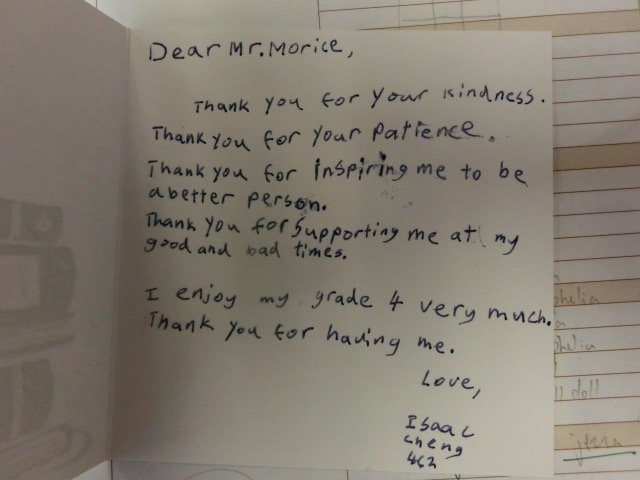 Dear Mr. Morice,
Thank you for your kindness.
Thank you for your patience.
Thank you for inspiring me to be
a better person.
Thank you for supporting me at my
good and bad times.
I enjoy my grade 4 very much.
Thank you for having me.
Love,
Isaac
Cheng
phelia
phelia
doll